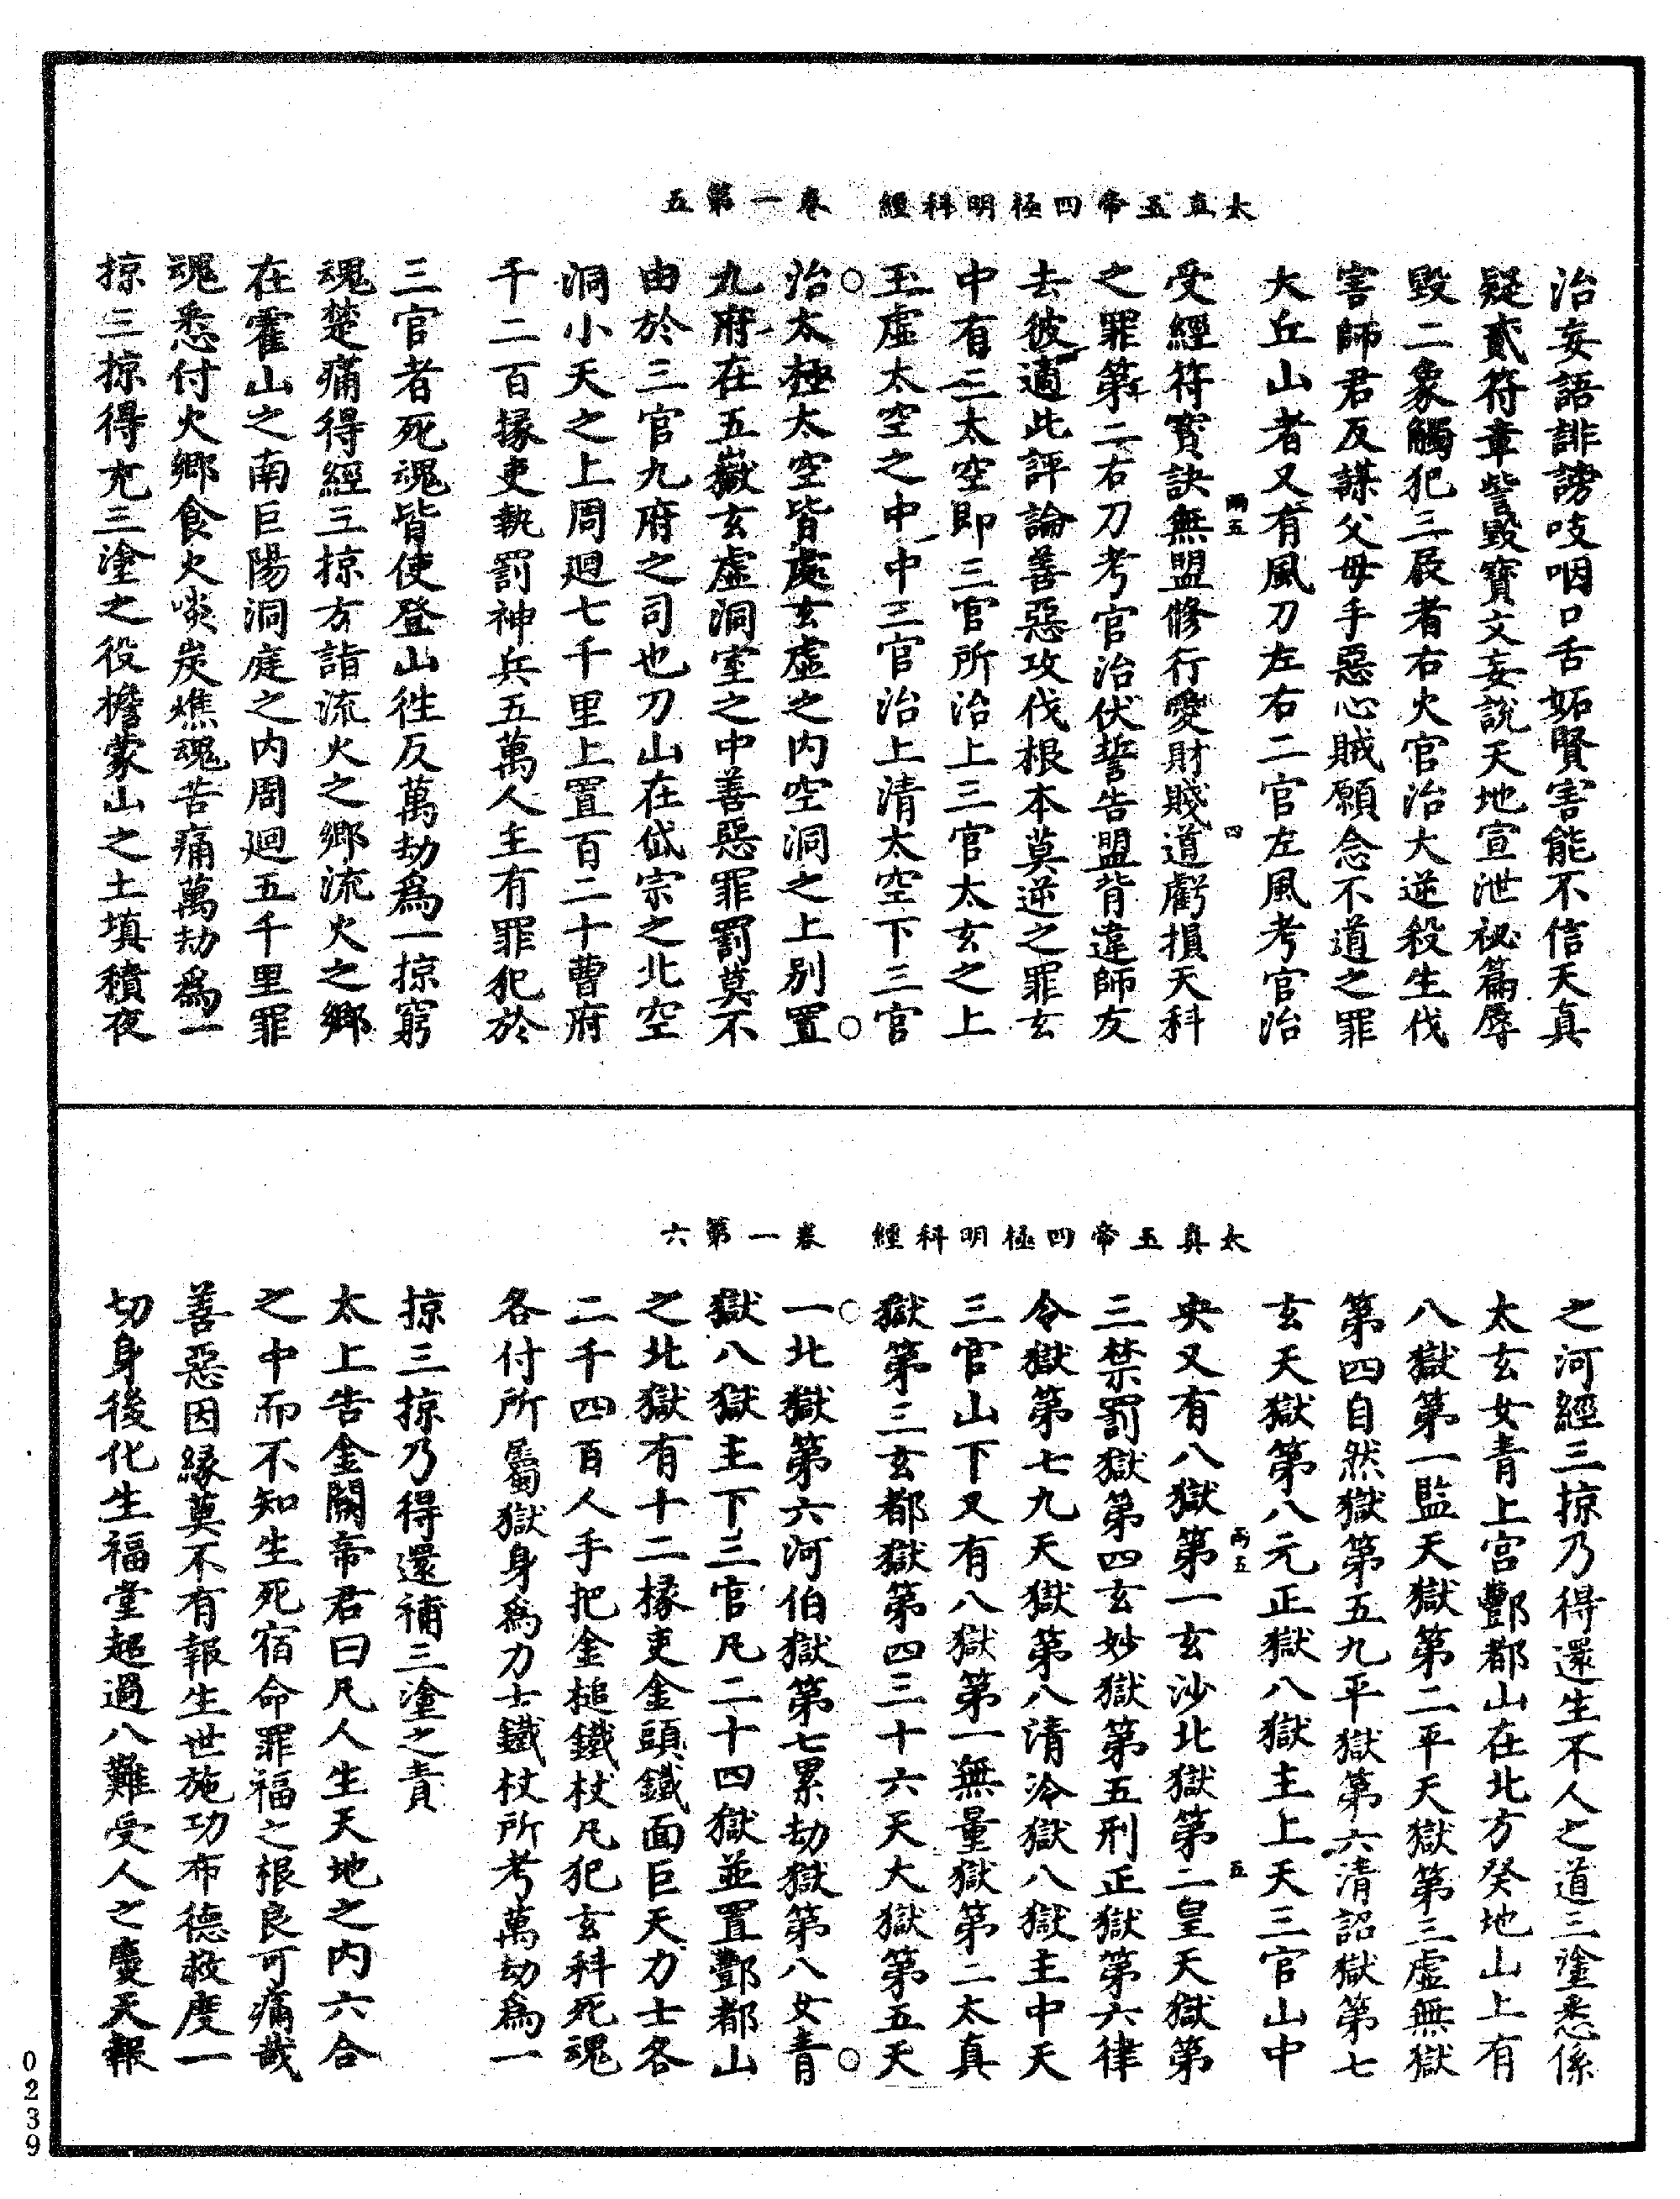 太真玉帝四極明科經 卷一第五
治妄語誹謗吱咽口舌妬賢害能不信天真
疑貳符章訾毀寶文妄說天地宣泄祕篇辱
毀二象觸犯三辰者右火官治大逆殺生伐
害師君反謀父母手惡心賊願念不道之罪
大丘山者又有風刀左右二官左風考官治
受經符寶訣無盟修行愛財賤道虧損天科
兩五
四
之罪第二右刀考官治伏誓告盟背違師友
去彼適此評論善惡攻伐根本莫逆之罪玄
中有三太空即三官所治上三官太玄之上
玉虛太空之中中三官治上清太空下三官
治太極太空皆處玄虛之內空洞之上別置
九府在五嶽玄虛洞室之中善惡罪罰莫不
由於三官九府之司也刀山在岱宗之北空
洞小天之上周迴七千里上置百二十曹府
千二百掾吏執罰神兵五萬人主有罪犯於
三官者死魂皆使登山往反萬劫為一掠窮
魂楚痛得經三掠方詣流火之鄉流火之鄉
在霍山之南巨陽洞庭之內周迴五千里罪
魂悉付火鄉食火噉炭燋魂苦痛萬劫為一
掠三掠得充三塗之役擔蒙山之土填積夜
太真玉帝四極明科經 卷一第六
之河經三掠乃得還生不人之道三塗悉係
太玄女青上宮酆都山在北方癸地山上有
八獄第一監天獄第二平天獄第三虛無獄
第四自然獄第五九平獄第六清詔獄第七
玄天獄第八元正獄八獄主上天三官山中
央又有八獄第一玄沙北獄第二皇天獄第
兩五
五
三禁罰獄第四玄妙獄第五刑正獄第六律
令獄第七九天獄第八清泠獄八獄主中天
三官山下又有八獄第一無量獄第二太真
獄第三玄都獄第四三十六天大獄第五天
一北獄第六河伯獄第七累劫獄第八女青
獄八獄主下三官凡二十四獄並置酆都山
之北獄有十二掾吏金頭鐵面巨天力士各
二千四百人手把金槌鐵杖凡犯玄科死魂
各付所屬獄身為力士鐵杖所考萬劫為一
掠三掠乃得還補三塗之責
太上告金闕帝君曰凡人生天地之內六合
之中而不知生死宿命罪福之根良可痛哉
善惡因緣莫不有報生世施功布德救度一
切身後化生福堂超過八難受人之慶天報
0239